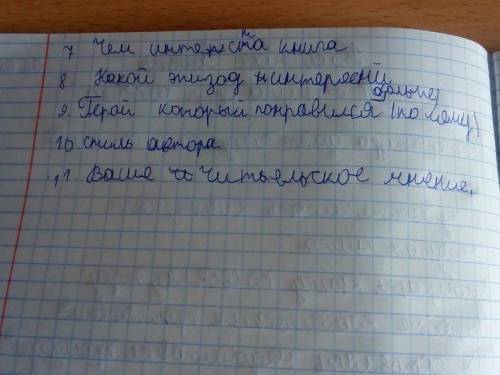 7 Чем интерстна книга
8. Какой эпизод интересный
больше
9. Герой который понравился (почему)
10 стиль автора
11 Ваше читьельское мнение.